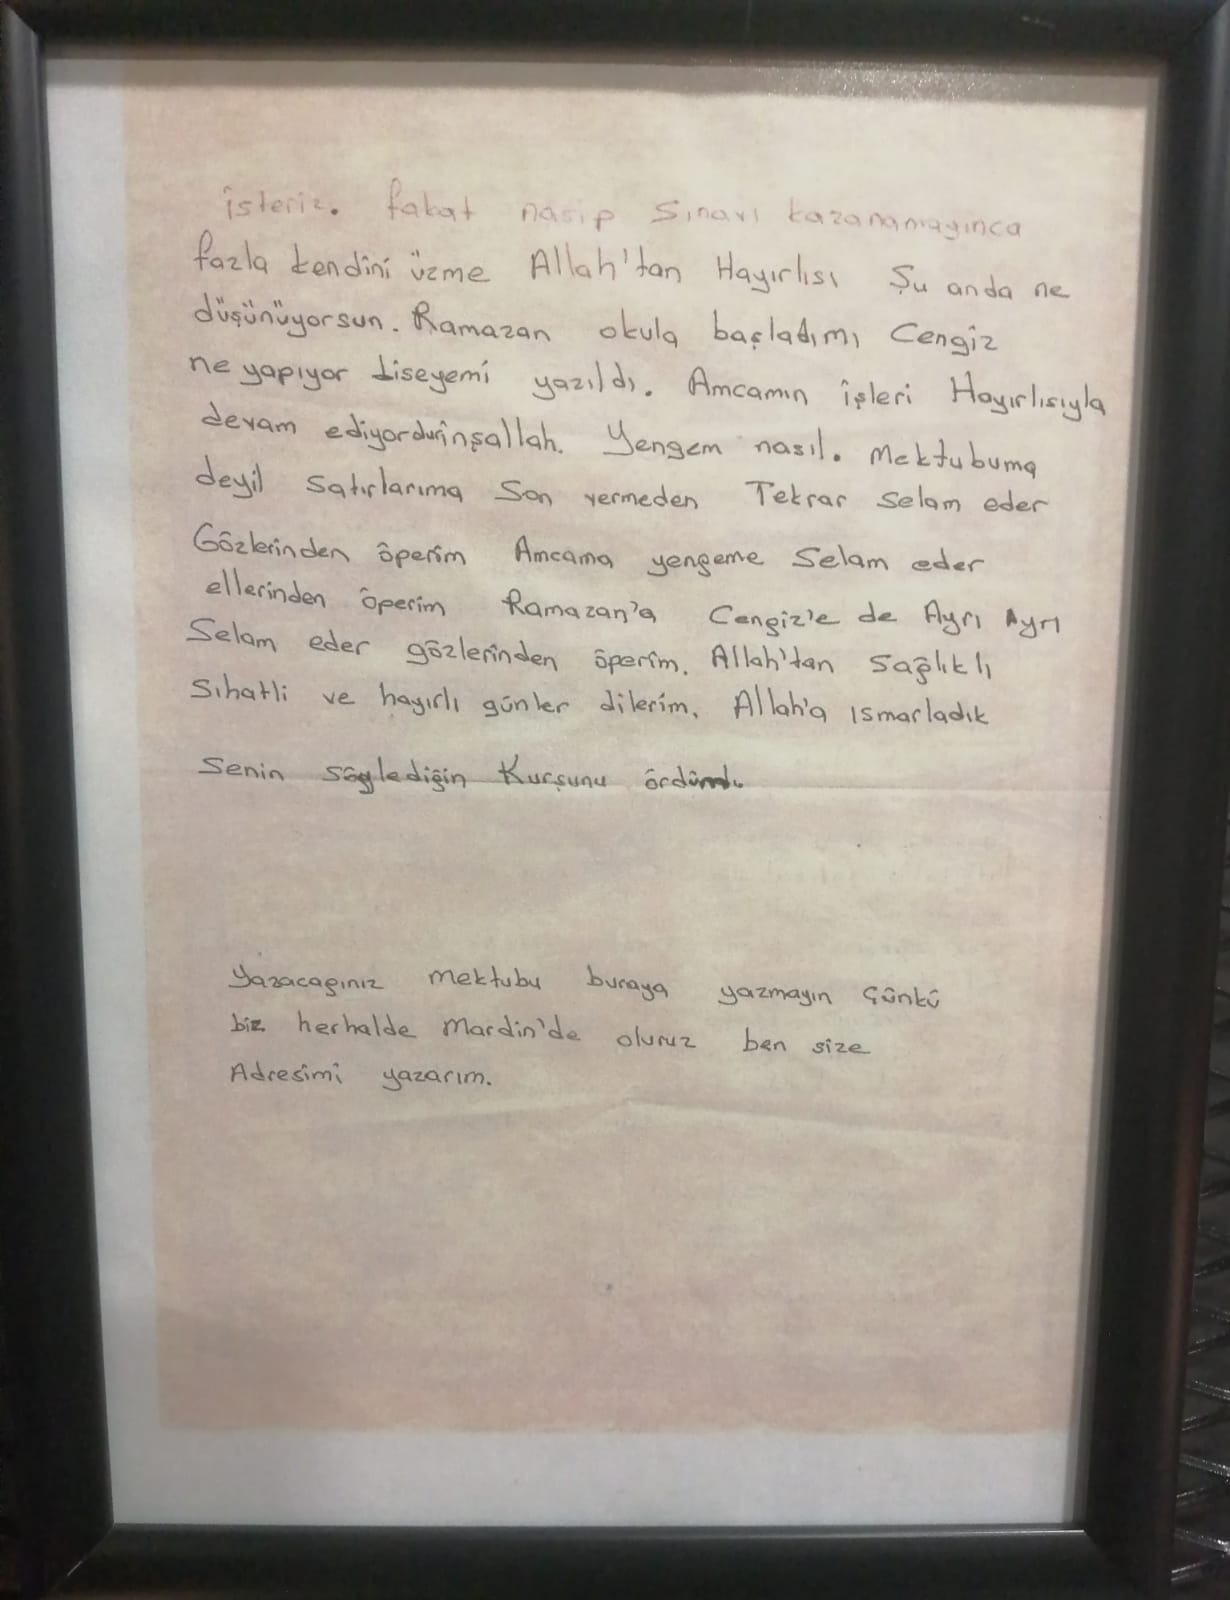 isteriz. fakat nasip Sınavı kazanamayınca
fazla kendini üzme Allah'tan Hayırlısı Şu anda ne
düşünüyorsun. Ramazan okula başladımı Cengiz
ne yapıyor Liseyemi yazıldı. Amcamın işleri Hayırlısıyla
devam ediyordur inşallah. Yengem nasıl. Mektubuma
deyil Satırlarıma Son vermeden Tekrar Selam eder
Gözlerinden öperim Amcama yengeme Selam eder
ellerinden öperim Ramazan'a Cengiz'e de Ayrı Ayrı
Selam eder gözlerinden öperim. Allah'tan sağlıklı
Sıhatli ve hayırlı günler dilerim. Allah'a ısmarladık
Senin söylediğin Kurşunu ördüm.
Yazacagınız mektubu buraya yazmayın Çünkü
biz herhalde Mardin'de oluruz ben size
Adresimi yazarım.